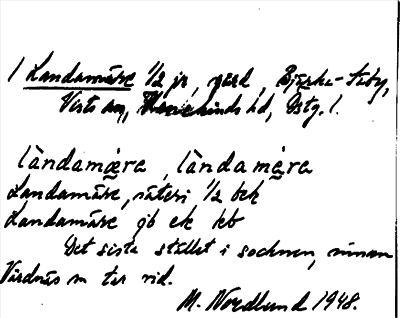 1 Landamäre 1/2 jr, gård, Bjärka-Säby,
Vists sn, Hanekinds hd, Östg. l.
làndamæra, làndamæ̀ra
Landamäre, säteri 1/2 bek
Landamäre gb ek kb
Det sista stället i socknen, innan
Vårdnäs sn tar vid.
M. Nordlund 1948.